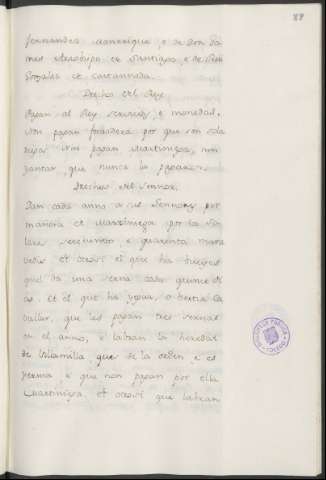 88
fernandes Manrrique, e de Don Go
mes Arzobispo de Santiago, e de Pero
Gozales de Castanneda.
Drechos del Rey
Pagan al Rey servicios e monedas.
Non pagan fonsadera por que son sola
riegos. Non pagan Martiniega, nin
yantar, que nunca la pagaron.
Drechos del Sennor.
Dan cada anno a sus Sennores por
mannera de Martiniega por la Sa
seiscientos e quarenta mara
vedis. Et otrosi el que ha bueyes
quel da una serna cada quince di
as. Et el que ha yegua, o bestia ca
vallar, que les pagan tres sernas
en el anno, e labran la heredad
de Villamilla que de la orden e es
yerma e que non pagan por ella
Martiniega. Et otrosi que labran
TOLEDO